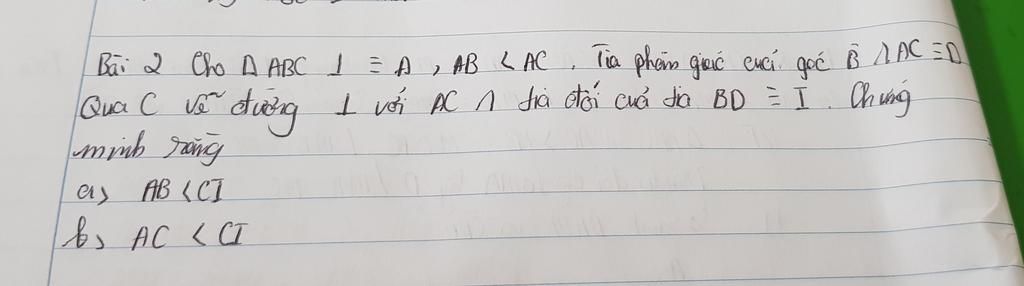 Bài 2 Cho Δ ABC ⊥ ≡ A, AB < AC, Tia phân giác cuả góc B̂ ∩ AC ≡ D
Qua C vẽ đường ⊥ với AC ∩ tia đối cuả tia BD ≡ I. Chứng
minh rằng
a, AB < CI
b, AC < CI